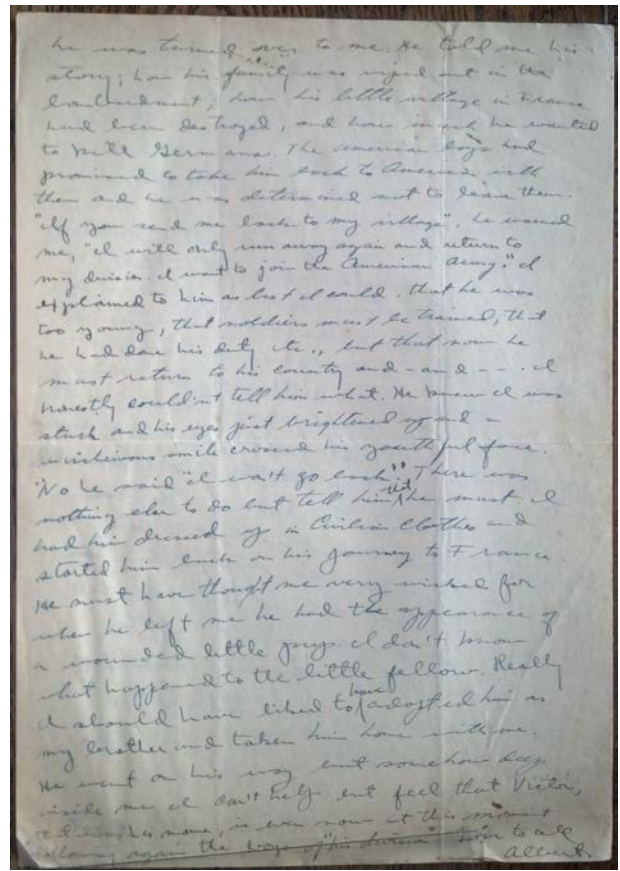 he was turned over to me. He told me his
story; how his family was wiped out in the
bombardment; how his little village in France
had been destroyed, and how much he wanted
to kill Germans. The American boys had
promised to take him back to America with
them and he was determined not to leave them.
"If you send me back to my village", he warned
me, "I will only run away again and return to
my division. I want to join the American Army." I
explained to him as best I could, that he was
too young, that soldiers must be trained, that
he had done his duty etc., but that now he
must return to his country and - and - - - . I
honestly couldn't tell him what. He knew I was
stuck and his eyes just brightened up and a
mischievous smile crossed his youthful face.
"No he said "I won't go back". There was
nothing else to do but tell him that he must. I
had him dressed up in Civilian Clothes and
started him back on his journey to France
He must have thought me very wicked for
when he left me he had the appearance of
a wounded little pup. I don't know
what happened to the little fellow. Really
I should have liked to have adopted him as
my brother and taken him home with me.
He went on his way but somehow deep
inside me I can't help but feel that Victor,
that was his name, is even now at this moment
following again the boys of "his division" to all
Albert